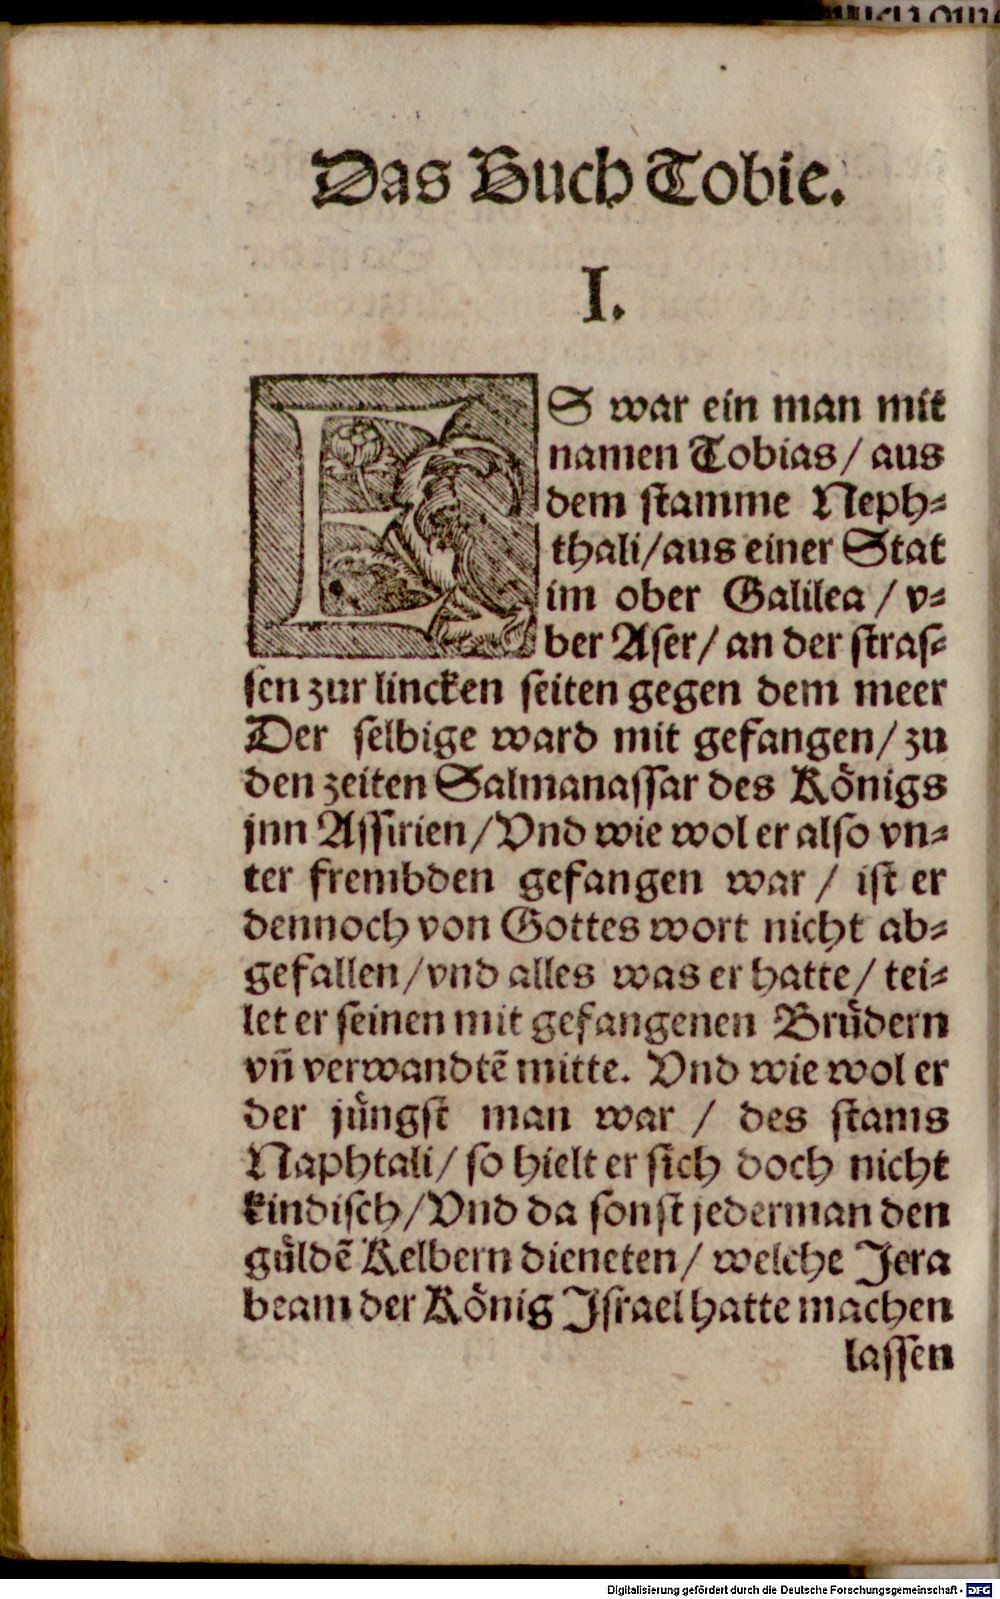 Das Buch Tobie.
I.
ES war ein man mit
namen Tobias/ aus
dem stamme Neph⸗
thali/aus einer Stat
im ober Galilea / v⸗
ber Aser/ an der stras⸗
sen zur lincken seiten gegen dem meer
Der selbige ward mit gefangen/ zu
den zeiten Salmanassar des Königs
jnn Assirien/Vnd wie wol er also vn⸗
ter frembden gefangen war / ist er
dennoch von Gottes wort nicht ab⸗
gefallen/vnd alles was er hatte/ tei⸗
let er seinen mit gefangenen Brüdern
vñ verwandtẽ mitte. Vnd wie wol er
der jüngst man war / des stams
Naphtali/ so hielt er sich doch nicht
kindisch/Vnd da sonst jederman den
güldẽ Kelbern dieneten/ welche Jera
beam der König Israel hatte machen
lassen
Digitalisierung gefördert durch die Deutsche Forschungsgemeinschaft - DFG